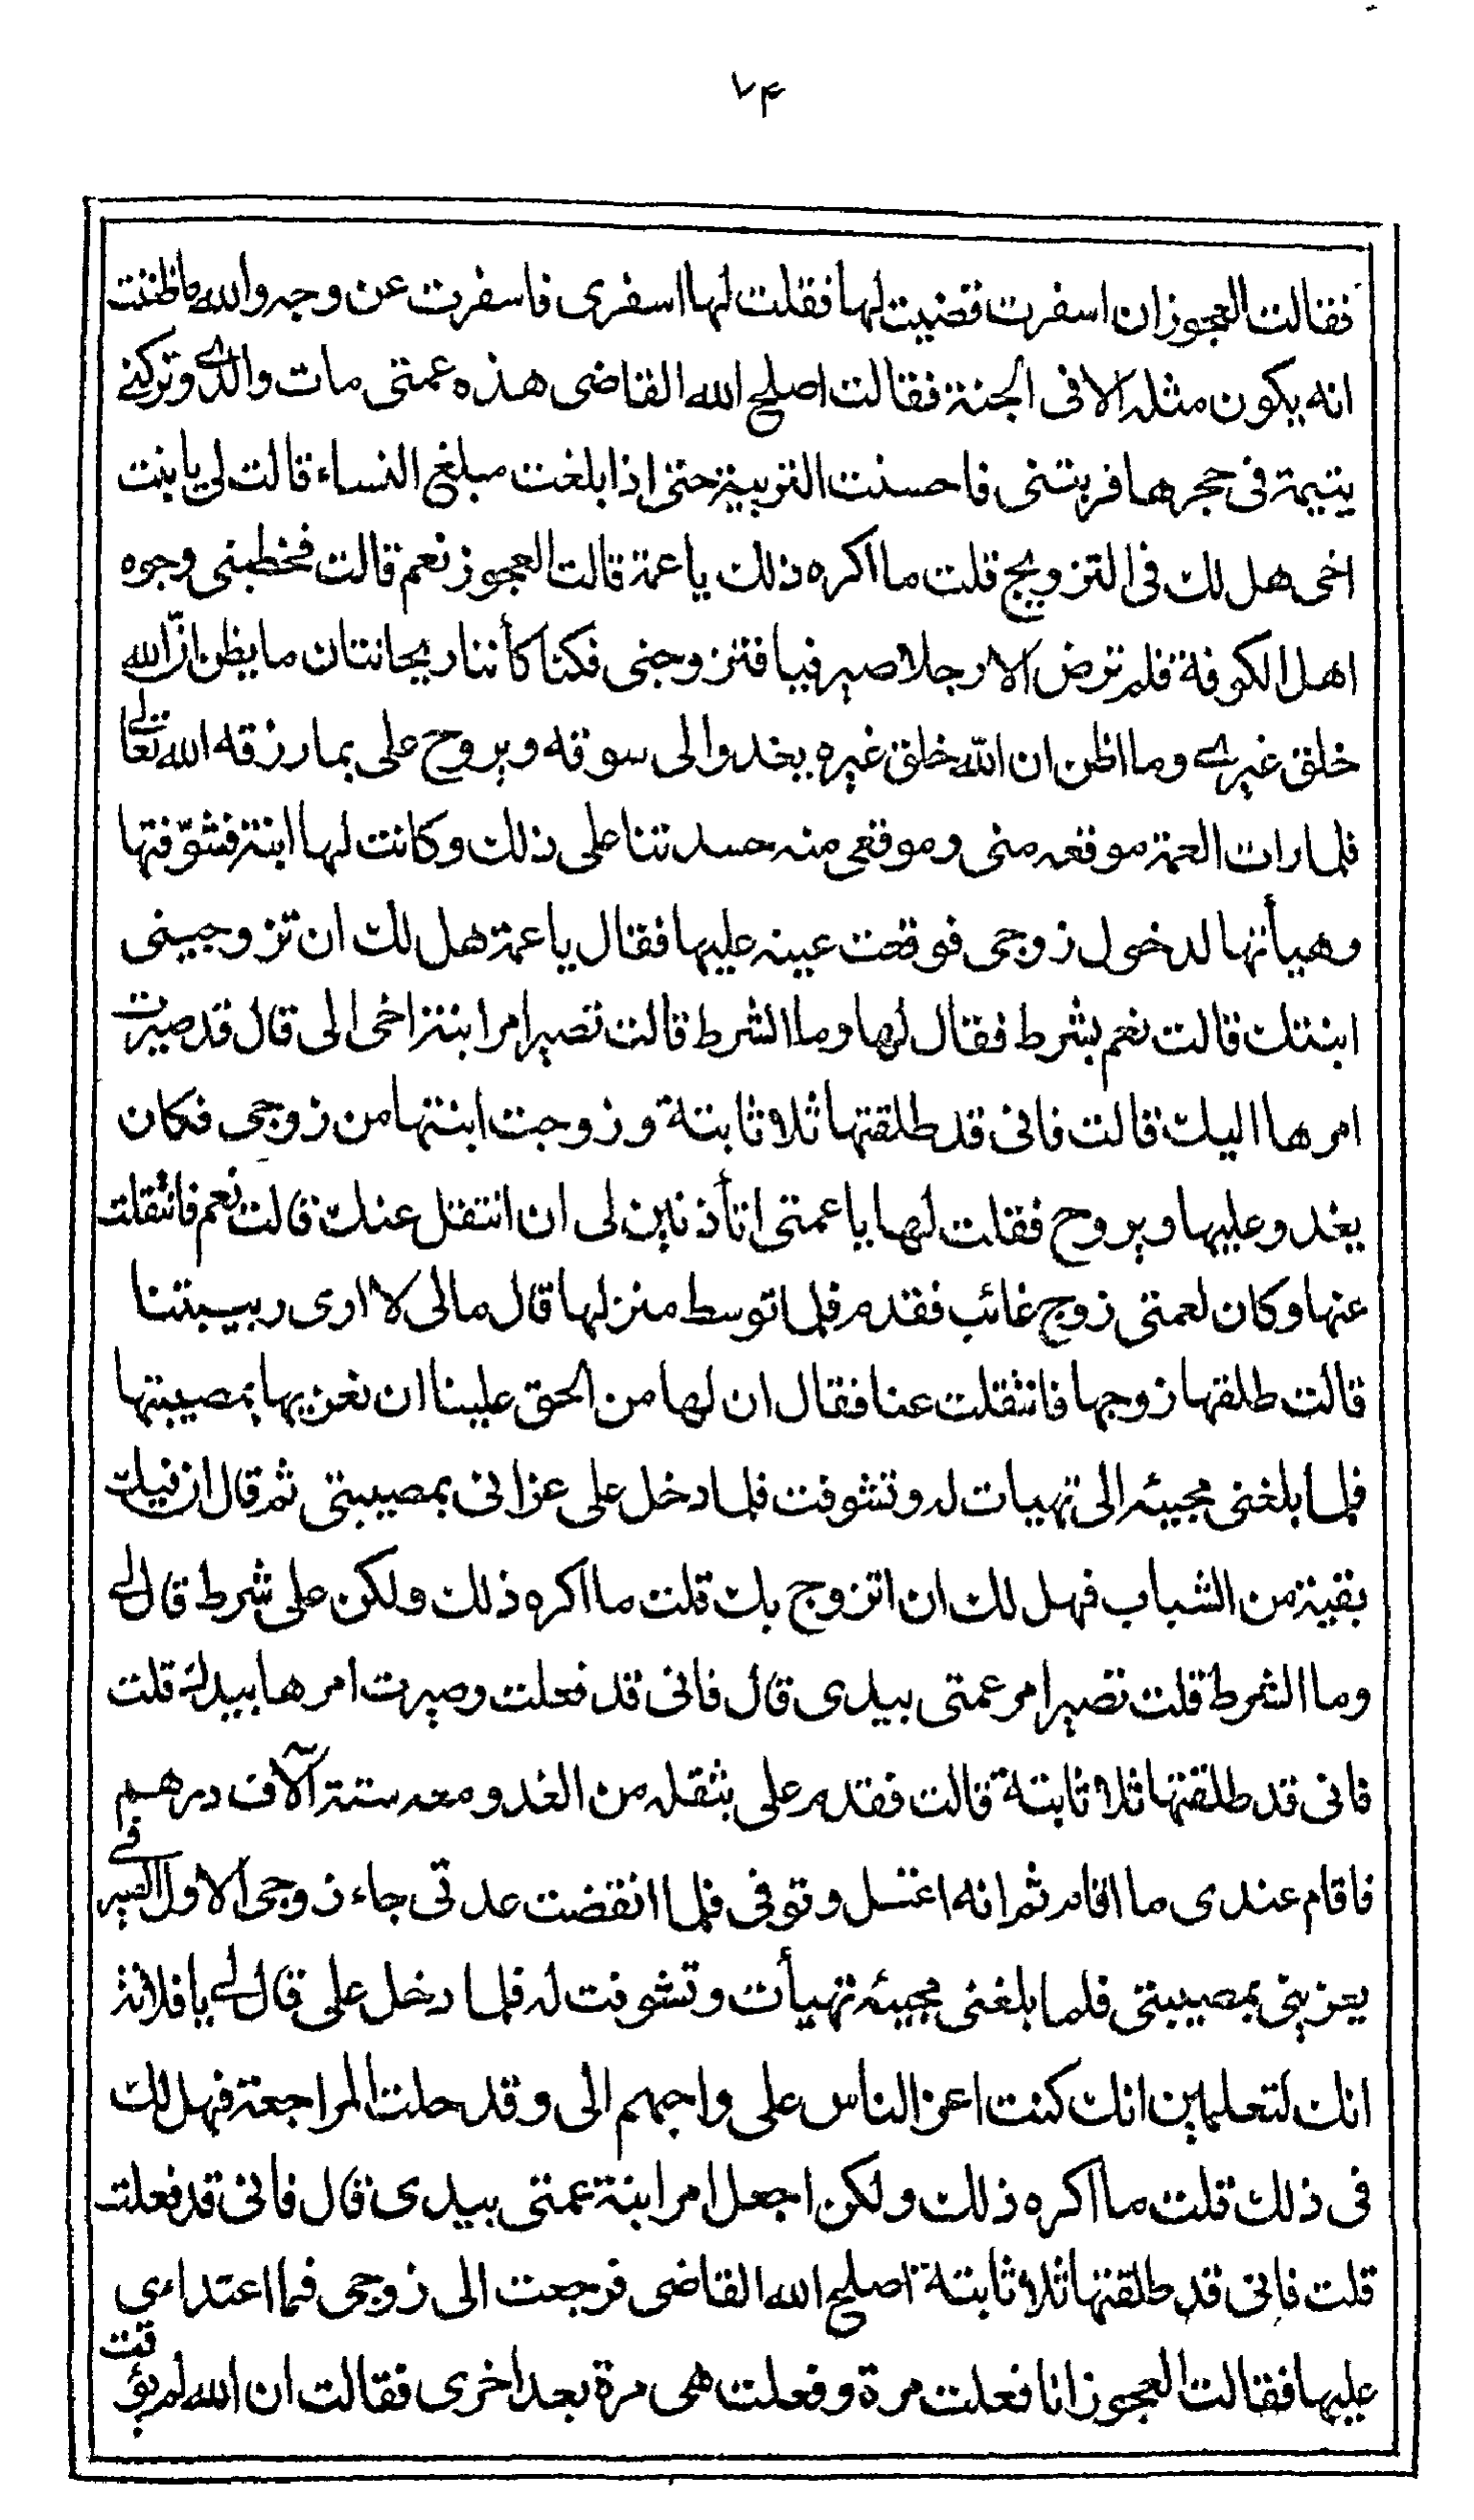 ٧٤
فقالت العجوز ان اسفرت قضيت لها فقلت لها اسفرى فاسفرت عن وجه والله ماظننت
انه يكون مثله الا فى الجنة فقالت اصلح الله القاضى هذه عمتى مات والدى وتركنى
يتيمة فى حجرها فربتنى فاحسنت التربية حتى اذا بلغت مبلغ النساء قالت لى يا بنت
اخى هل لك فى التزويج قلت ما اكره ذلك يا عمة قالت العجوز نعم قالت فخطبنى وجوه
اهل الكوفة فلم ترض الا رجلا صيرفيا فتزوجنى فكنا كأننا ريحانتان ما يظن انّ الله
خلق غيرى وما اظن ان الله خلق غيره يغدوا الى سوقه ويروح على بما رزقه الله تعالى
فلما رات العمة موقعه منى وموقعى منه حسدتنا على ذلك وكانت لها ابنة فشوّفتها
وهيأتها لدخول زوجى فوقعت عينه عليها فقال يا عمة هل لك ان تزوجينى
ابنتك قالت نعم بشرط فقال لها وما الشرط قالت تصير امر ابنة اخى الى قال قد صيرت
امرها اليك قالت فانى قد طلقتها ثلاثا بتة وزوجت ابنتها من زوجى فكان
يغدو عليها ويروح فقلت لها يا عمتى اتأذنين لى ان انتقل عنك قالت نعم فانتقلت
عنها وكان لعمتى زوج غائب فقدم فلما توسط منزلها قال مالى لا ارى ربيبتنا
قالت طلقها زوجها فانتقلت عنا فقال ان لها من الحق علينا ان نعزيها بمصيبتها
فلما بلغنى مجيئه الى تهيات له وتشوفت فلما دخل على عزانى بمصيبتى ثم قال ان فيك
بقية من الشباب فهل لك ان اتزوج بك قلت ما اكره ذلك ولكن على شرط قال لى
وما الشرط قلت تصير امر عمتى بيدى قال فانى قد فعلت وصيرت امرها بيدك قلت
فانى قد طلقتها ثلاثا بتة قالت فقدم على بثقله من الغد ومعه ستة آلاف درهم
فاقام عندى ما اقام ثم انه اعتل وتوفى فلما انقضت عدتى جاء زوجى الاول الصيرفى
يعزينى بمصيبتى فلما بلغنى مجيئه تهيأت وتشوفت له فلما دخل على قال لى يا فلانة
انك لتعلمين انك كنت اعز الناس على واحبهم الى وقد حلت المراجعة فهل لك
فى ذلك قلت ما اكره ذلك ولكن اجعل امر ابنة عمتى بيدى قال فانى قد فعلت
قلت فانى قد طلقتها ثلاثا بتة اصلح الله القاضى فرجعت الى زوجى فما اعتداءى
عليها فقالت العجوز انا فعلت مرة وفعلت هى مرة بعد اخرى فقالت ان الله لم يؤقت